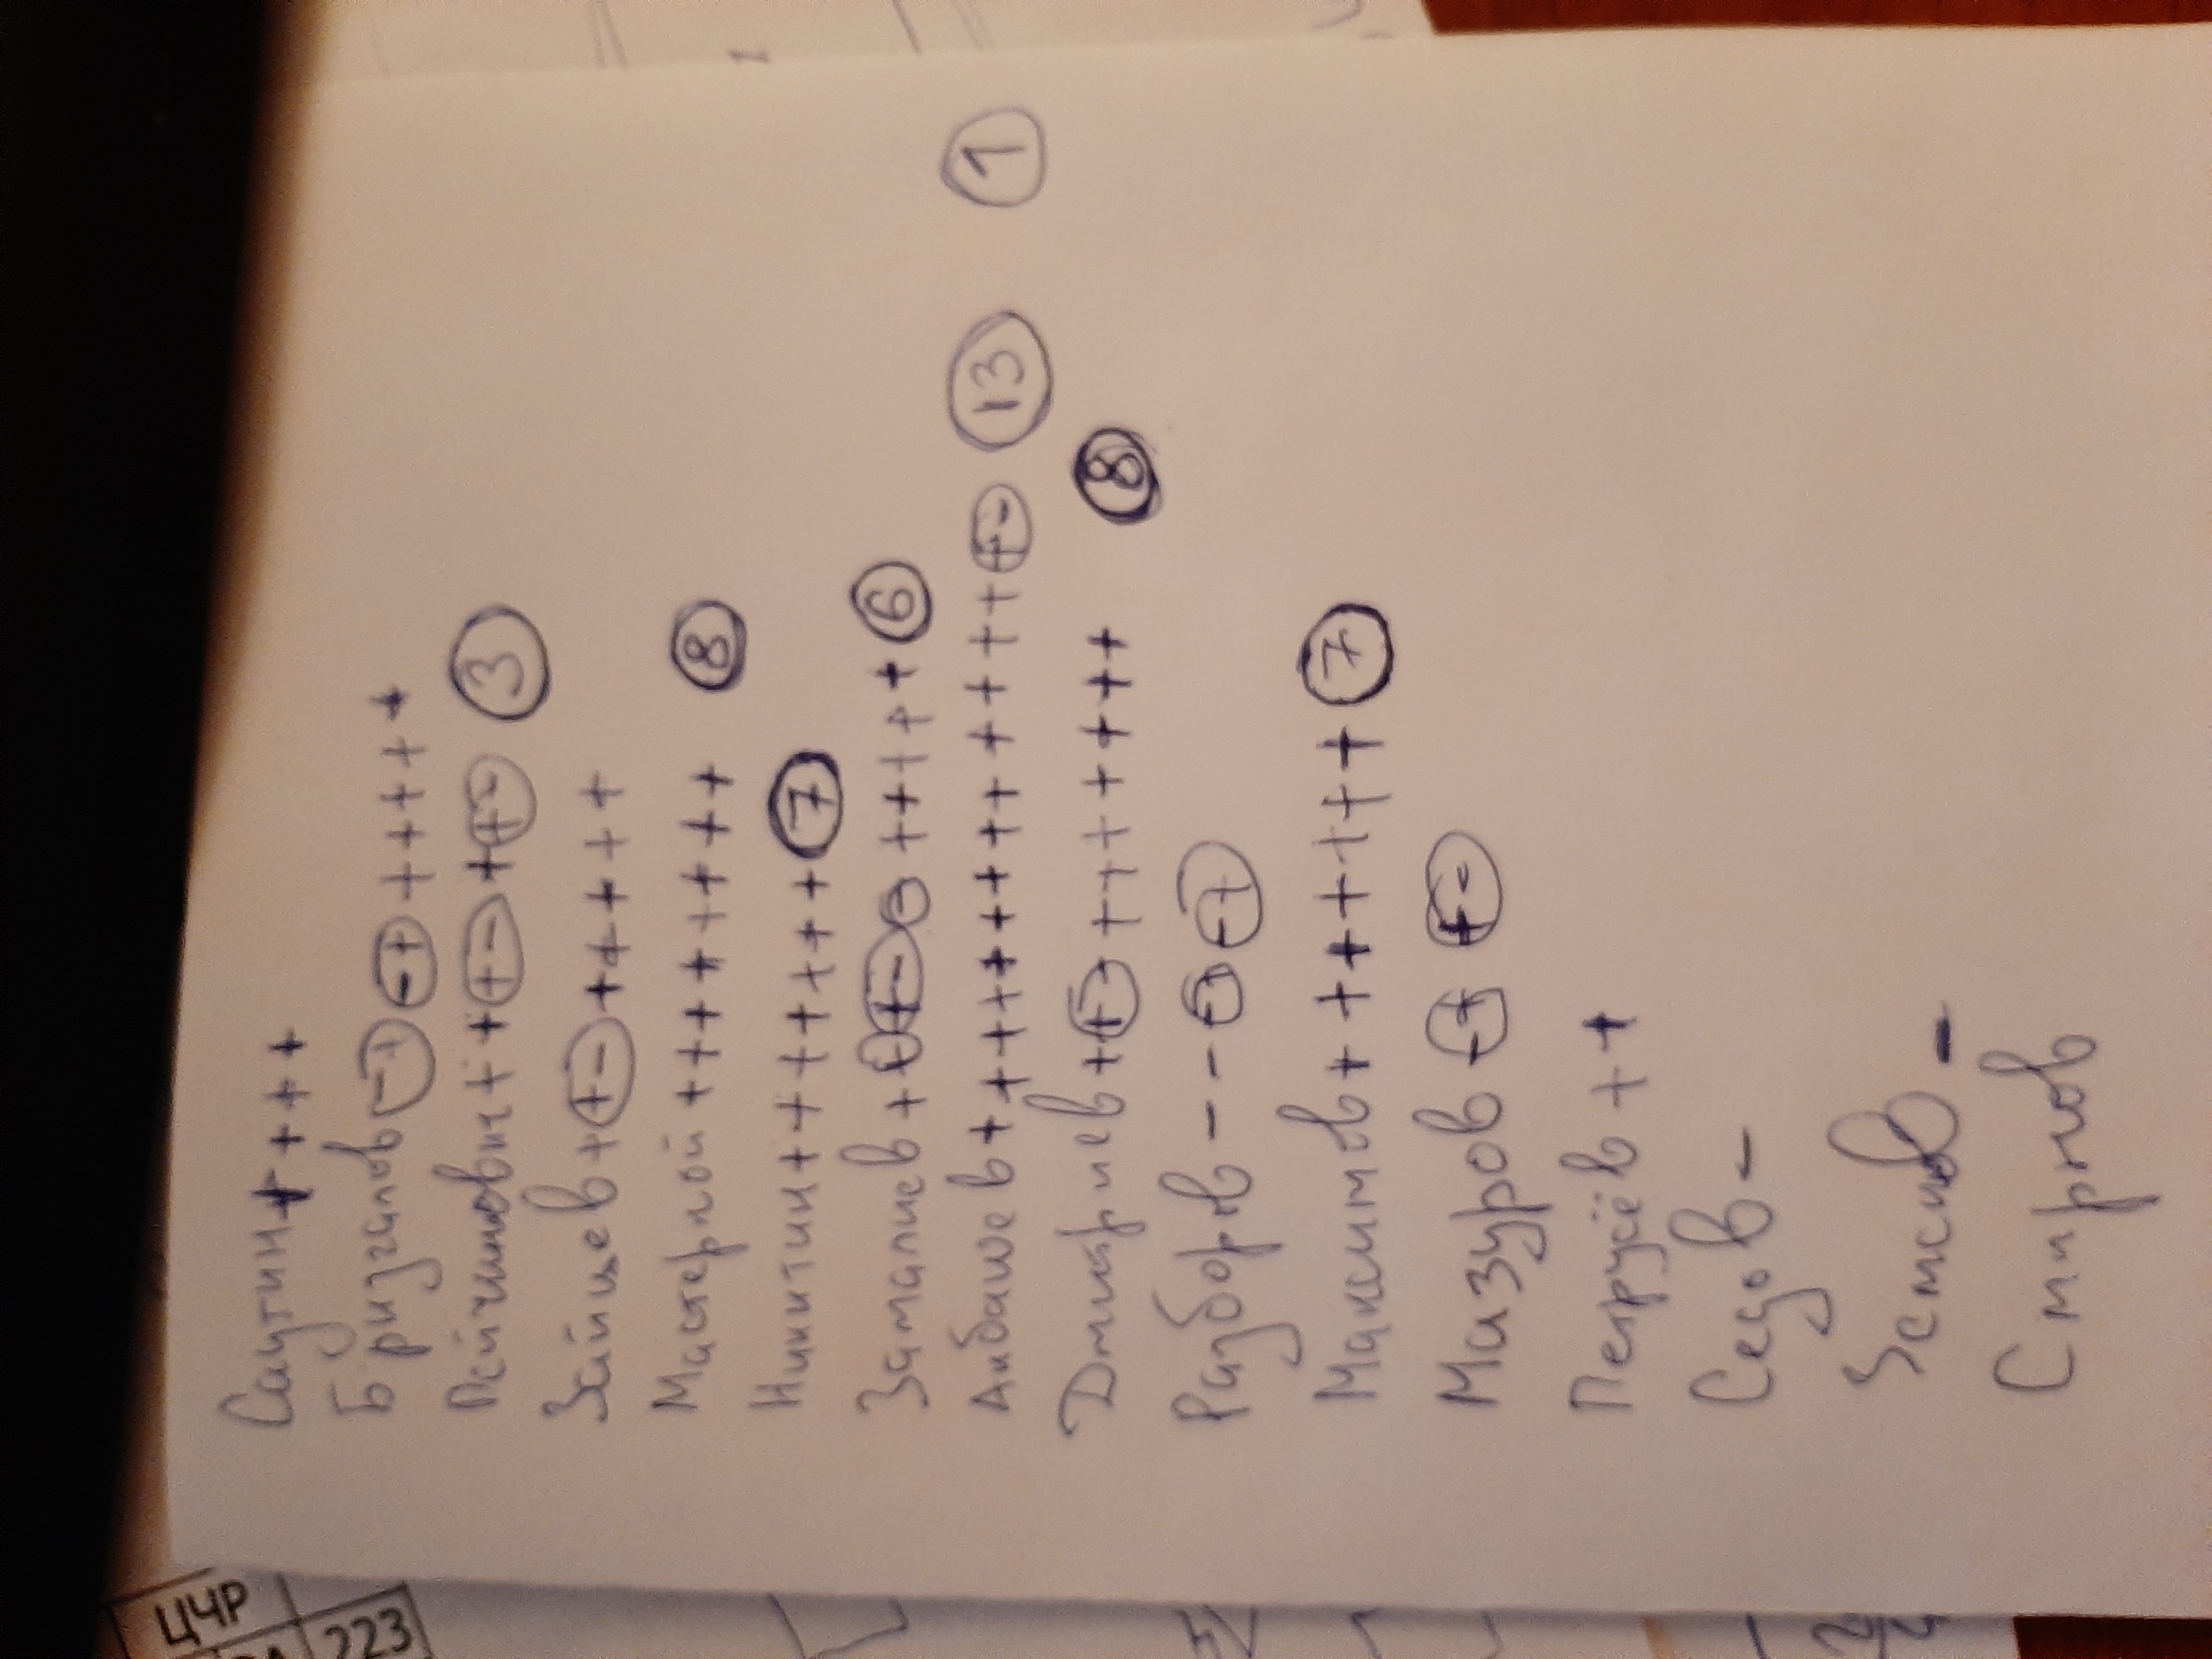 Саутин + + + +
Бризгалов -+ -+ + + + + +
Пейчинович + + +- + +- 3
Зайцев + +- + + + + +
Мастерной + + + + + + + + 8
Никитин + + + + + + + 7
Замалиев + + +- - + + + + + 6
Анбашев + + + + + + + + + + + + + +- 13 1
Дмитриев + +- + + + + + + + 8
Разборов - - -+ -+
Максимов + + + + + + + 7
Мазуров -+ +-
Петрусёв + +
Седов -
Земсков -
Смирнов
ЦЧР
223